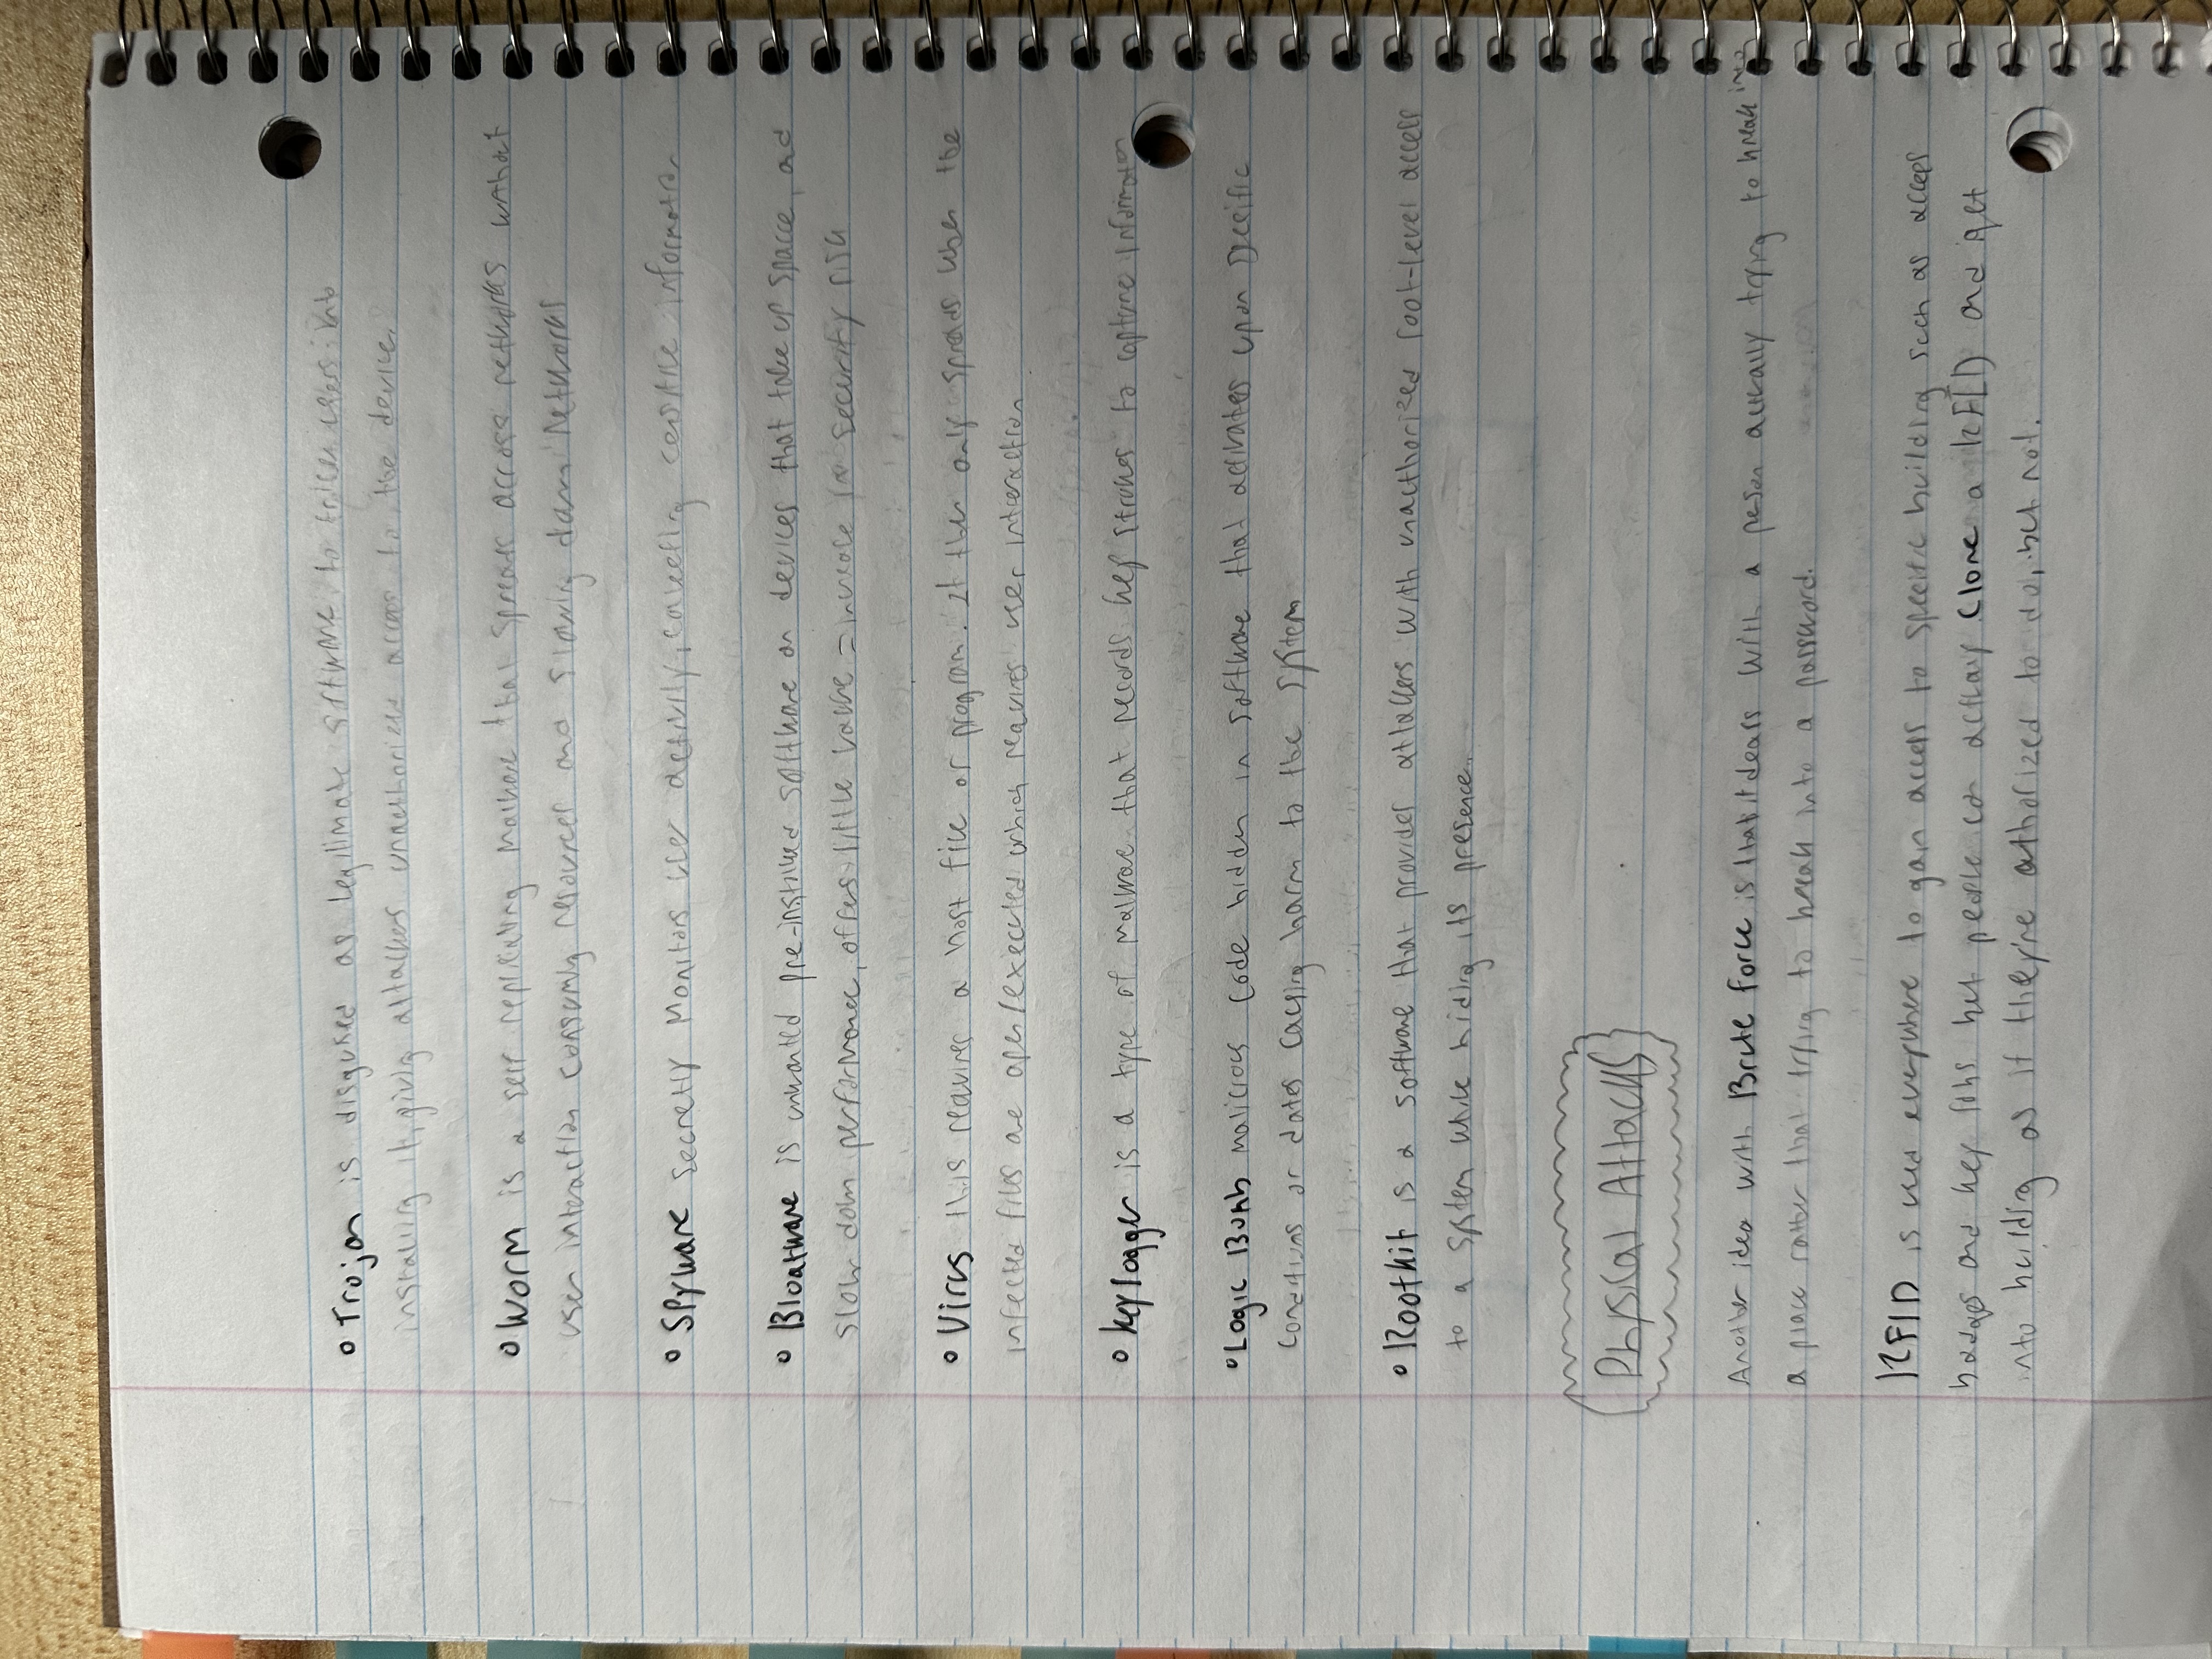 Trojan is disguised as legitimate software to tricks users into
installing it, giving attackers unauthorized access to the device.
Worm is a self replicating malware that spreads across networks without
user interaction consuming resources and slowing down networks
Spyware secretly monitors user activity, collecting censitive information
Bloatware is unwanted pre-installed software on devices that take up space, and
slow down performance, offers little value = increase in security risk
Virus this requires a host file or program. It then only spreads when the
infected files are open/executed which requires user interaction
Keylogger is a type of malware that records key strokes to capture information
Logic Bomb malicious code hidden in software that activates upon specific
conditions or dates causing harm to the system
Rootkit is a software that provides attackers with unauthorized root-level access
to a system while hiding its presence.
Physical Attacks
Another idea with Brute force is that it deals with a person actually trying to break into
a place rather that trying to break into a password.
RFID is used everywhere to gain access to specific building such as access
badges and key fobs but people can actually clone a RFID and get
into building as if they're athorized to do, but not.